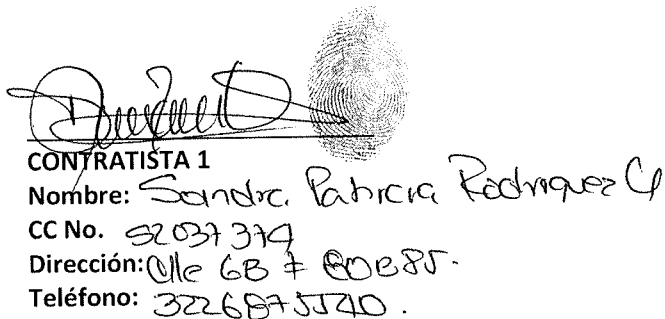 CONTRATISTA 1
Nombre: Sandra Patricia Rodriguez
CC No. 52037374
Dirección: Clle 6B # 80B85.
Teléfono: 3226875540.